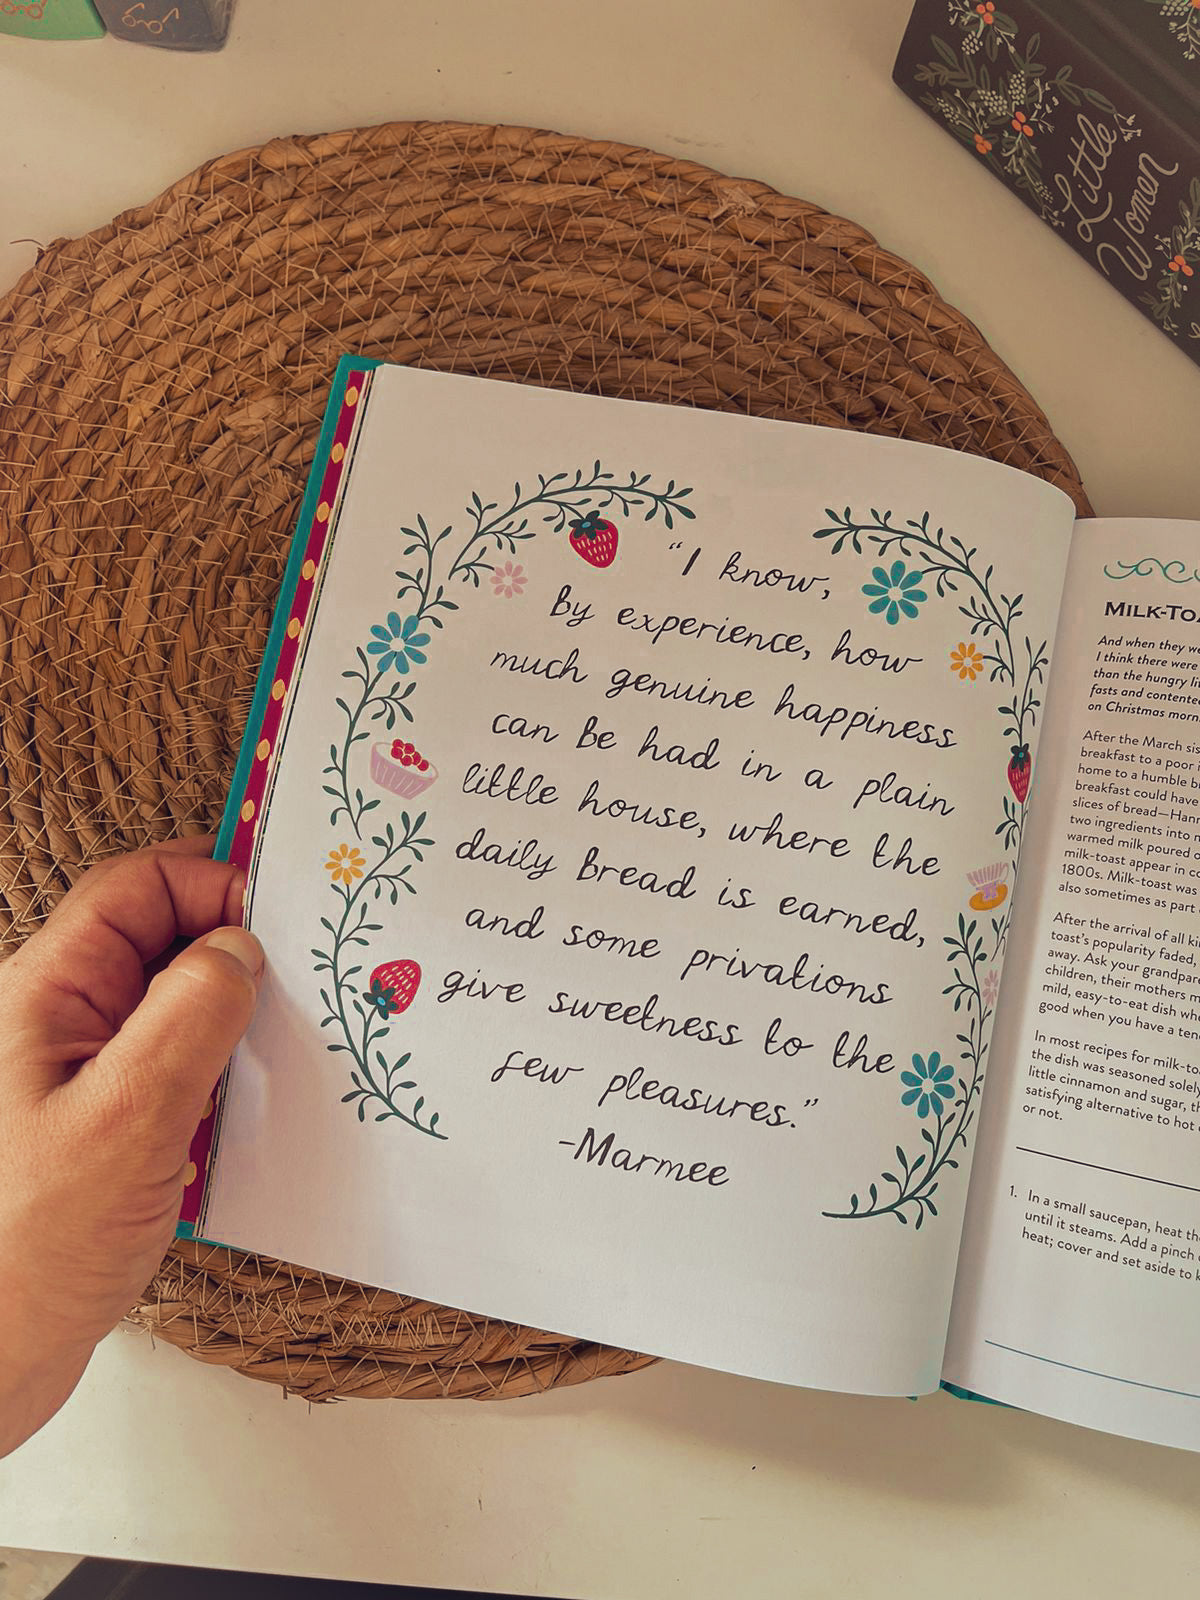 Little
Women
"I know,
by experience, how
much genuine happiness
can be had in a plain
little house, where the
daily bread is earned,
and some privations
give sweetness to the
few pleasures."
-Marmee
MILK-TOA
And when they we
I think there were
than the hungry lit
fasts and contented
on Christmas morn
After the March sis
breakfast to a poor
home to a humble b
breakfast could have
slices of bread—Hann
two ingredients into
warmed milk poured o
milk-toast appear in co
1800s. Milk-toast was
also sometimes as part
After the arrival of all ki
toast's popularity faded,
away. Ask your grandpare
children, their mothers m
mild, easy-to-eat dish whe
good when you have a ten
In most recipes for milk-to
the dish was seasoned solely
little cinnamon and sugar, th
satisfying alternative to hot
or not.
1. In a small saucepan, heat the
until it steams. Add a pinch
heat; cover and set aside to k